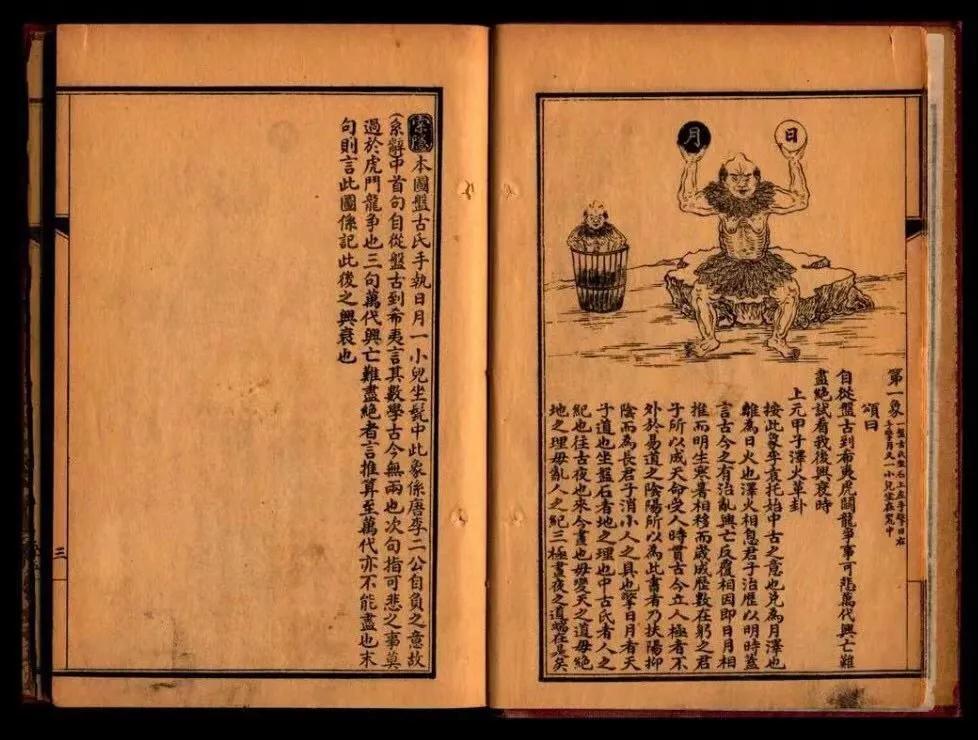 月
日
第一象 一盤古氏盤石上左手擎日右手擎月又一小兒坐在髠中
頌曰
自從盤古到希夷虎鬪龍爭事可悲萬代興亡難
盡絕試看我後興衰時
上元甲子澤火革卦
按此象李袁托始中古之意也兌為月澤也
離為日火也澤火相息君子治歷以明時蓋
言古今之有治亂興亡反覆相因即日月相
推而明生寒暑相移而歲成歷數在躬之君
子所以成天命受人時貫古今立人極者不
外於易道之陰陽所以為此書者乃扶陽抑
陰而為長君子消小人之具也擎日月有天
子道也坐盤石者地之理也中古氏者人之
紀也往古夜也來今晝也毋變天之道毋絕
地之理毋亂人之紀三極晝夜之道端在是矣
索隱 本圖盤古氏手執日月一小兒坐髠中此象係唐李二公自負之意故
(系辭中首句自從盤古到希夷言其數學古今無兩也次句指可悲之事莫
過於虎鬥龍爭也三句萬代興亡難盡絕者言推算至萬代亦不能盡也末
句則言此圖係記此後之興衰也
三